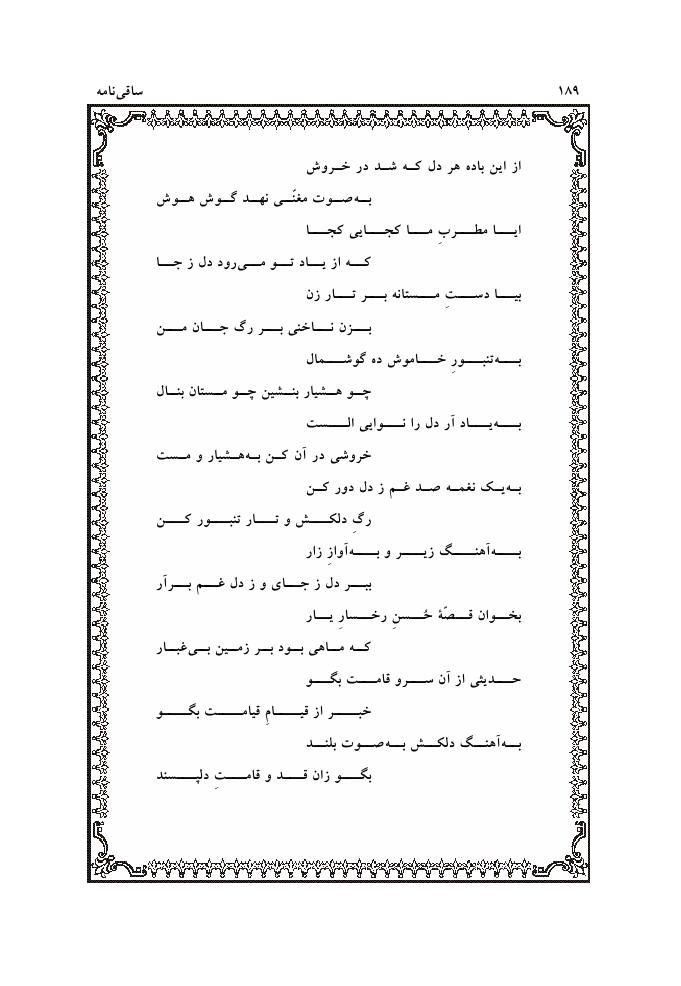 ۱۸۹ ساقی‌نامه
از این باده هر دل که شد در خروش
به‌صوت مغنّی نهد گوش هوش
ایا مطربِ ما کجایی کجا
که از یاد تو می‌رود دل ز جا
بیا دستِ مستانه بر تار زن
بزن ناخنی بر رگ جان من
به‌تنبورِ خاموش ده گوشمال
چو هشیار بنشین چو مستان بنال
به‌یاد آر دل را نوایی الست
خروشی در آن کن به‌هشیار و مست
به‌یک نغمه صد غم ز دل دور کن
رگِ دلکش و تار تنبور کن
به‌آهنگ زیر و به‌آوازِ زار
ببر دل ز جای و ز دل غم برآر
بخوان قصّهٔ حُسنِ رخسارِ یار
که ماهی بود بر زمین بی‌غبار
حدیثی از آن سرو قامت بگو
خبر از قیامِ قیامت بگو
به‌آهنگ دلکش به‌صوت بلند
بگو زان قد و قامتِ دلپسند